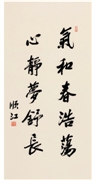 氣和春浩蕩
心靜夢舒長
順江